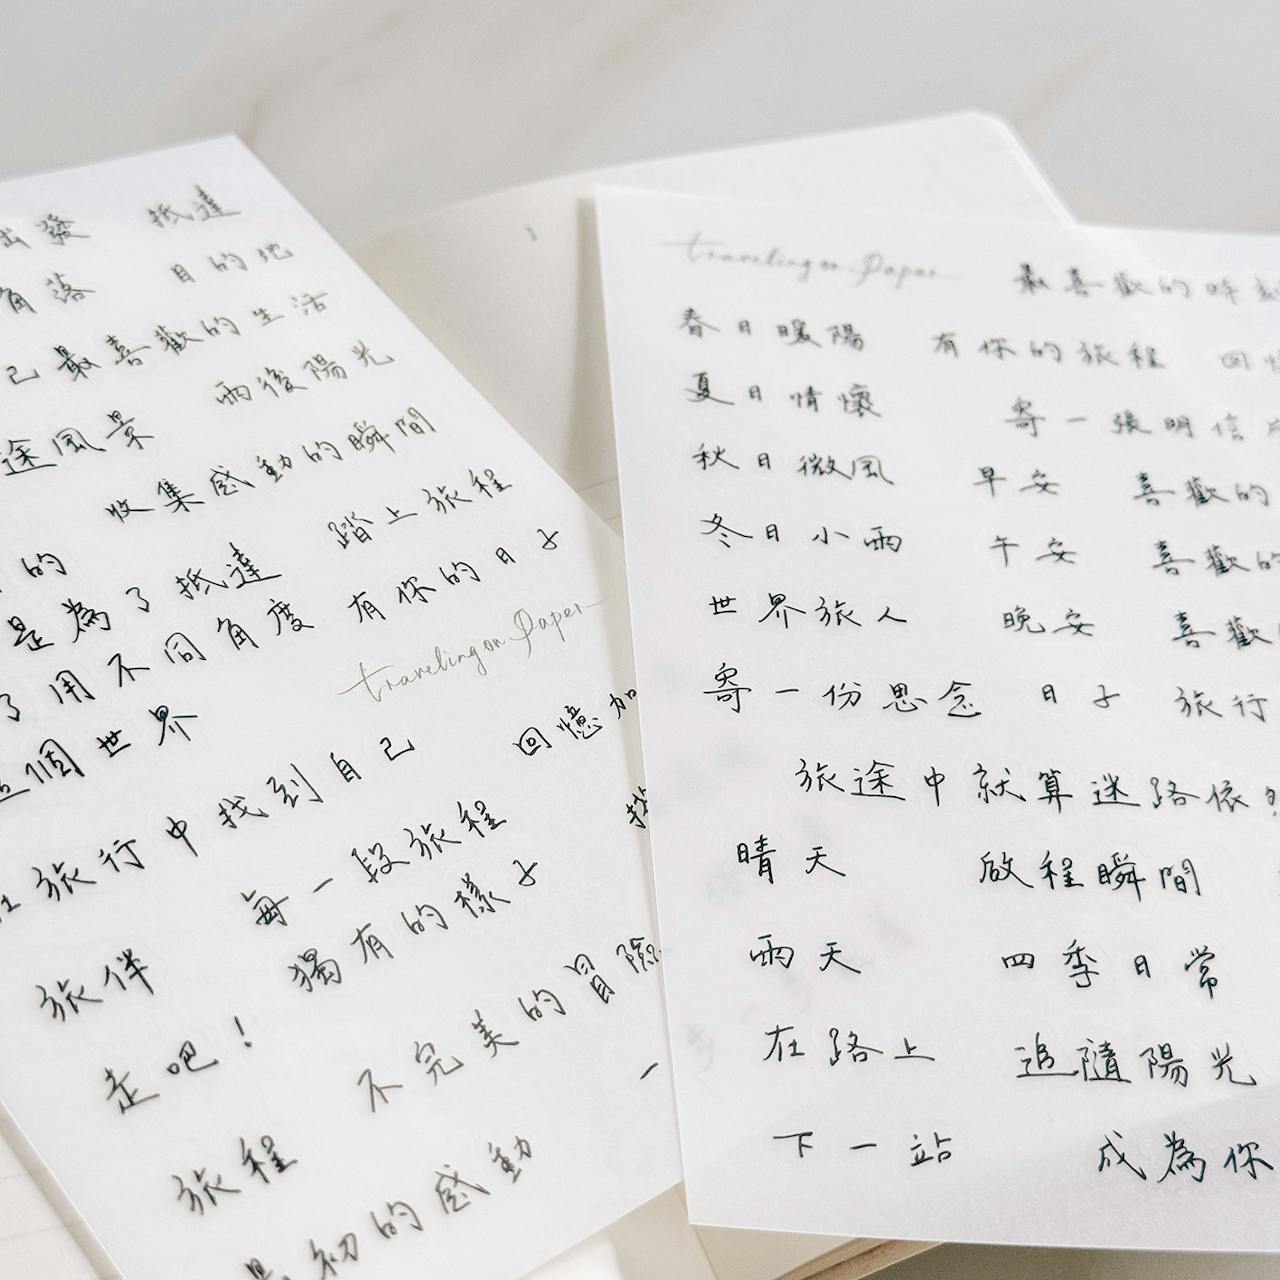 出發 抵達
角落 目的地
己最喜歡的生活
途風景 雨後陽光
收集感動的瞬間
的 踏上旅程
是為了抵達
了用不同角度 有你的日子
這個世界
traveling on Paper
在旅行中找到自己 回憶加
旅伴 每一段旅程
獨有的樣子
走吧！ 不完美的冒險
旅程 一
最初的感動
traveling on Paper 最喜歡的時刻
春日暖陽 有你的旅程 回憶
夏日情懷 寄一張明信
秋日微風 早安 喜歡的
冬日小雨 午安 喜歡的
世界旅人 晚安 喜歡
寄一份思念 日子 旅行
旅途中就算迷路依
晴天 啟程瞬間
雨天 四季日常
在路上 追隨陽光
下一站 成為你